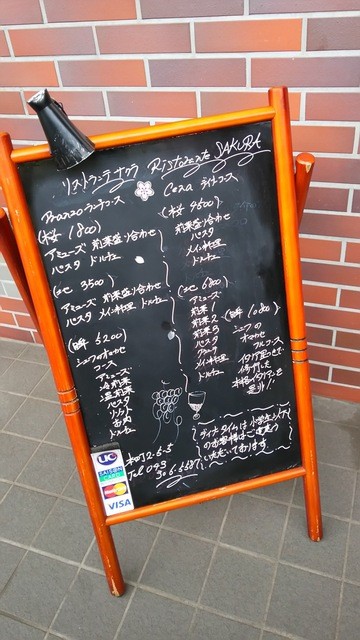 リストランテ サクラ Ristorante SAKURA
Pranzo ランチコース
(桜 1800)
アミューズ 前菜盛り合わせ
パスタ ドルチェ
3500)
アミューズ 前菜盛り合わせ
パスタ メイン料理 ドルチェ
5200)
シェフのおまかせ
コース
アミューズ
冷前菜
温前菜
パスタ
リゾット
お肉
ドルチェ
Cena ディナーコース
(桜 4500)
前菜盛り合わせ
パスタ
メイン料理
ドルチェ
6800)
アミューズ
前菜1
前菜2
前菜3
パスタ
メイン料理
ドルチェ
10,800)
シェフの
おまかせ
フルコース
イタリア
修行した
本格イタリアンを
是非!
ディナータイムは小学生以下
のお客様はご遠慮
いただいております
本町2-5-5
Tel 043
306-5587
UC
SAISON
CARD
MasterCard
VISA